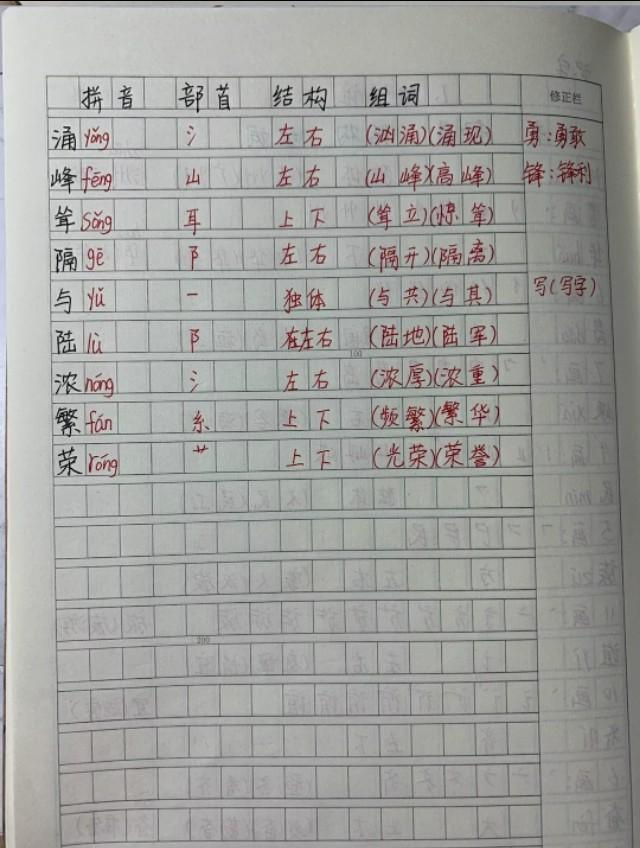 拼音 部首 结构 组词 修正栏
涌 yǒng 氵 左右 (汹涌)(涌现) 勇:勇敢
峰 fēng 山 左右 (山峰)(高峰) 锋:锋利
耸 sǒng 耳 上下 (耸立)(惊耸)
隔 gē 阝 左右 (隔开)(隔离)
与 yǔ 一 独体 (与共)(与其) 写(写字)
陆 lù 阝 左右 (陆地)(陆军)
100
浓 nóng 氵 左右 (浓厚)(浓重)
繁 fán 糸 上下 (频繁)(繁华)
荣 róng 艹 上下 (光荣)(荣誉)
200